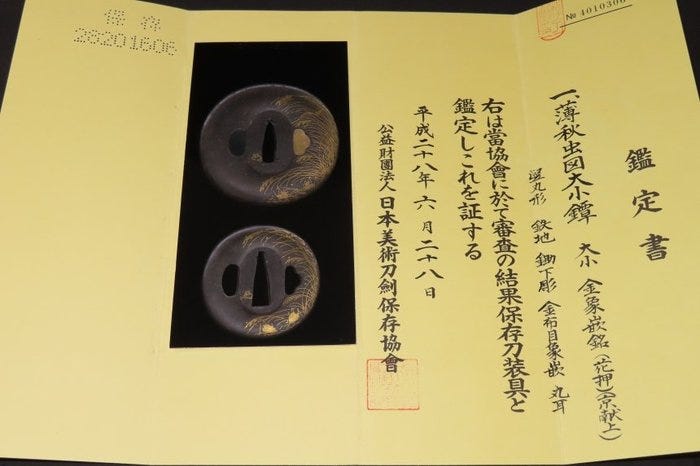 鑑定書
一、薄秋虫図大小鐔 大小 金象嵌銘(花押)(京献上)
竪丸形 鉄地 鋤下彫 金布目象嵌 丸耳
右は當協會に於て審査の結果保存刀装具と
鑑定しこれを証する
平成二十八年六月二十八日
公益財團法人 日本美術刀劍保存協會
№ 4010306
保存
28201606